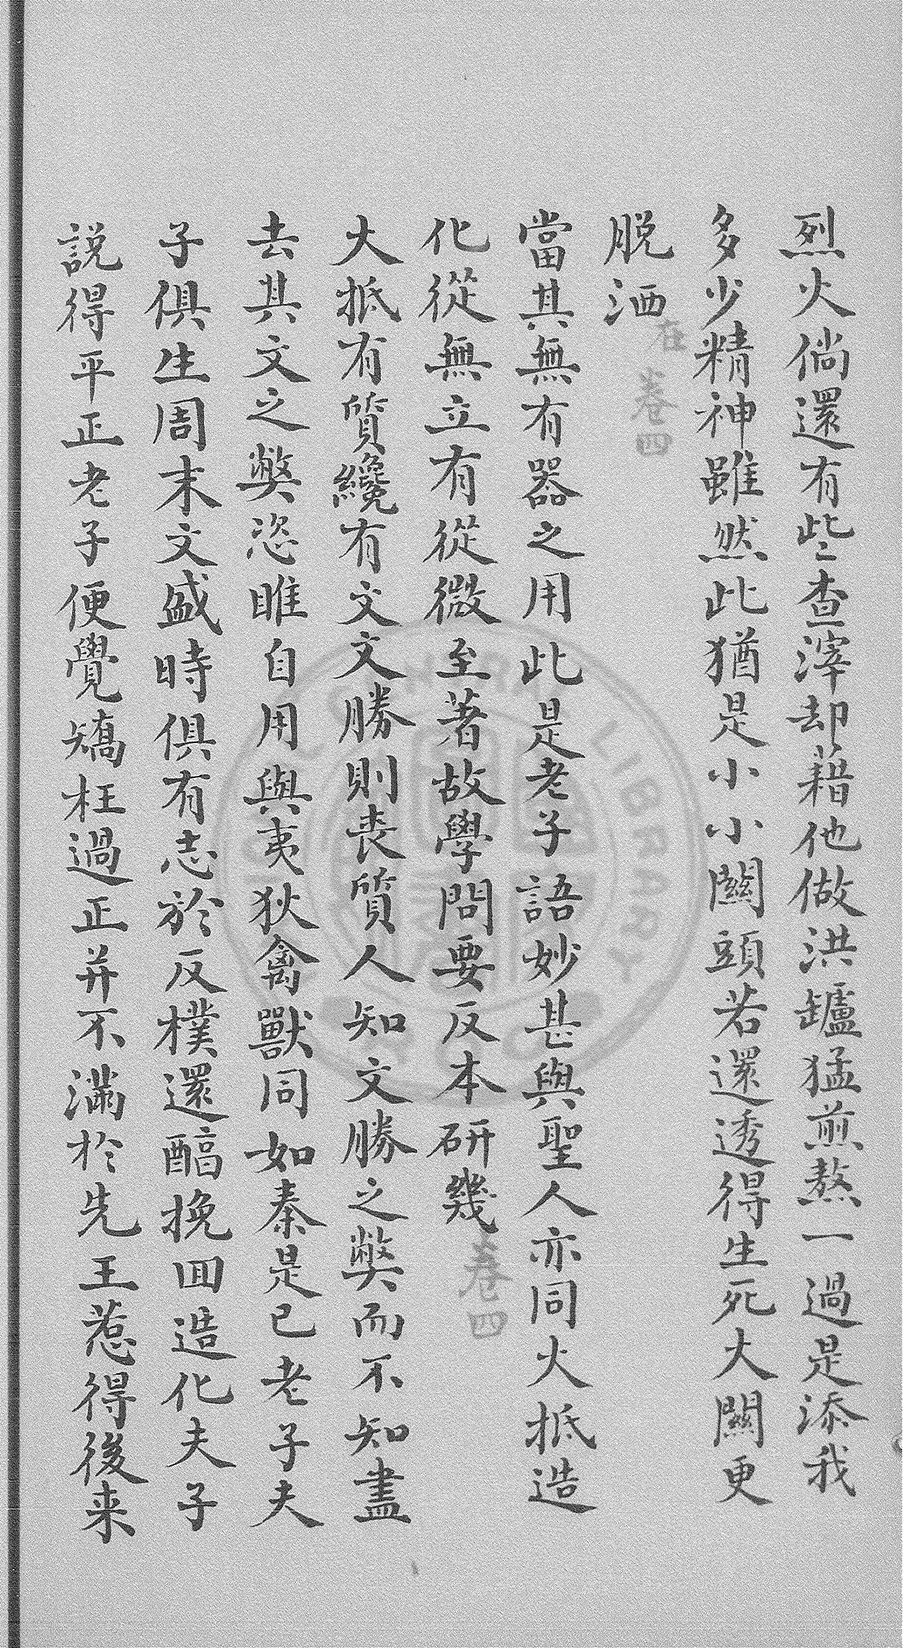 烈火倘還有些查滓却藉他做洪罏猛煎熬一過是添我
多少精神雖然此猶是小小關頭若還透得生死大關更
脱洒
在卷四
當其無有器之用此是老子語妙甚與聖人亦同大抵造
化從無立有從微至著故學問要反本研幾
卷四
大抵有質纔有文文勝則喪質人知文勝之獘而不知盡
去其文之獘恣睢自用與夷狄禽獸同如秦是已老子夫
子俱生周末文盛時俱有志於反樸還醕挽回造化夫子
説得平正老子便覺矯枉過正并不滿於先王惹得後来